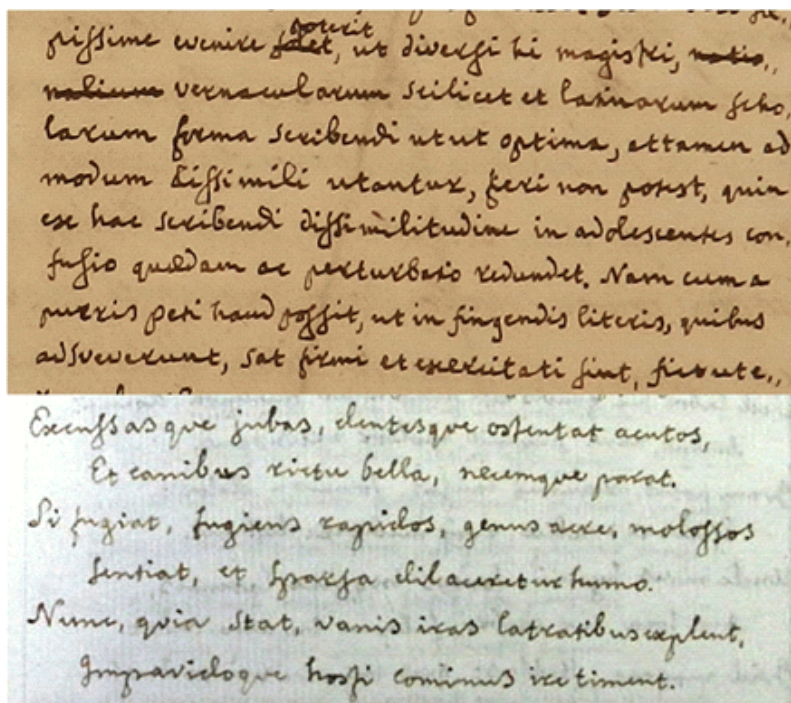 poterit
pissime evenire solet, ut diversi hi magistri, natio„
nalium vernacularum scilicet et latinarum scho„
larum forma scribendi utut optima, attamen ad
modum dissimili utantur, fieri non potest, quin
ex hac scribendi dissimilitudine in adolescentes con„
fusio quædam ac perturbatio redundet. Nam cum a
pueris peti haud possit, ut in fingendis literis, quibus
adsveverunt, sat firmi et exercitati sint,
Excussasque jubas, dentesque ostentat acutos,
Et canibus rictu bella, necemque parat.
Si fugiat, fugiens rapidos, genus acre, molossos
sentiat, et sparsa dilaceretur humo.
Nunc, quia stat, vanis iras latratibus explent,
Impavidoque hosti cominus ire timent.